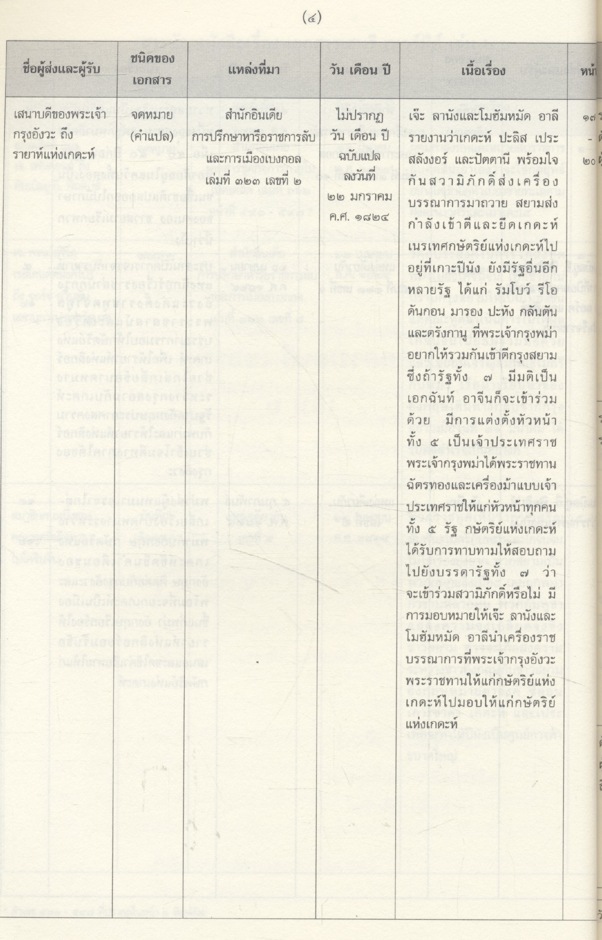 (๔)
ชื่อผู้ส่งและผู้รับ
ชนิดของ
เอกสาร
แหล่งที่มา
วัน เดือน ปี
เนื้อเรื่อง
หน้า
เสนาบดีของพระเจ้า
กรุงอังวะ ถึง
รายาห์แห่งเกดะห์
จดหมาย
(คำแปล)
สำนักอินเดีย
การปรึกษาหารือราชการลับ
และการเมืองเบงกอล
เล่มที่ ๓๒๓ เลขที่ ๒
ไม่ปรากฏ
วัน เดือน ปี
ฉบับแปล
ลงวันที่
๒๒ มกราคม
ค.ศ. ๑๘๒๔
เจ๊ะ ลานังและโมฮัมหมัด อาลี
รายงานว่าเกดะห์ ปะลิส เประ
สลังงอร์ และปัตตานี พร้อมใจ
กันสวามิภักดิ์ส่งเครื่อง
บรรณาการมาถวาย สยามส่ง
กำลังเข้าตีและยึดเกดะห์
เนรเทศกษัตริย์แห่งเกดะห์ไป
อยู่ที่เกาะปีนัง ยังมีรัฐอื่นอีก
หลายรัฐ ได้แก่ รัมโบว์ รีโอ
ดันกอน มารอง ปะหัง กลันตัน
และตรังกานู ที่พระเจ้ากรุงพม่า
อยากให้รวมกันเข้าตีกรุงสยาม
ซึ่งถ้ารัฐทั้ง ๗ มีมติเป็น
เอกฉันท์ อาจีนก็จะเข้าร่วม
ด้วย มีการแต่งตั้งหัวหน้า
ทั้ง ๕ เป็นเจ้าประเทศราช
พระเจ้ากรุงพม่าได้พระราชทาน
ฉัตรทองและเครื่องม้าแบบเจ้า
ประเทศราชให้แก่หัวหน้าทุกคน
ทั้ง ๕ รัฐ กษัตริย์แห่งเกดะห์
ได้รับการทาบทามให้สอบถาม
ไปยังบรรดารัฐทั้ง ๗ ว่า
จะเข้าร่วมสวามิภักดิ์หรือไม่ มี
การมอบหมายให้เจ๊ะ ลานังและ
โมฮัมหมัด อาลีนำเครื่องราช
บรรณาการที่พระเจ้ากรุงอังวะ
พระราชทานให้แก่กษัตริย์แห่ง
เกดะห์ไปมอบให้แก่กษัตริย์
แห่งเกดะห์
๑๓
-
๒๐